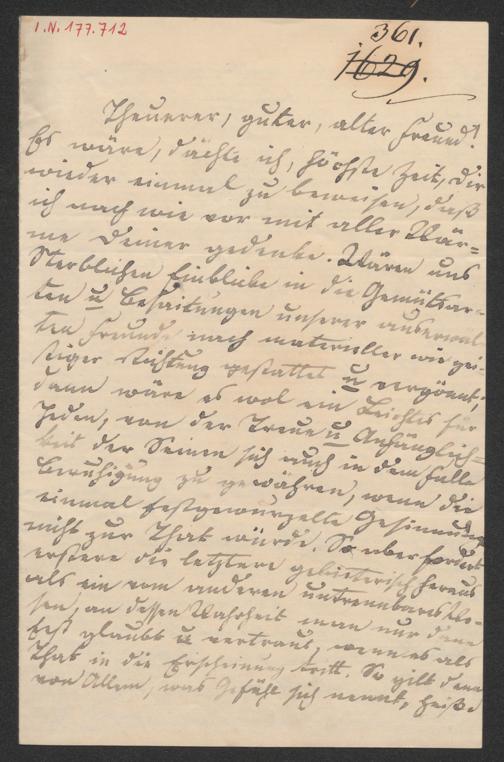 I.N. 177.712
361.
1629.
Theuerer, guter, alter Freund!
Es wäre, dächte ich, höchste Zeit, Dir
wieder einmal zu beweisen, daß
ich nach wie vor mit aller Wär=
me Deiner gedenke. Wären uns
Sterblichen Einblicke in die Gemütsar=
ten u Besaitungen unserer auserwäl
ten Freunde nach materieller wie gei=
stiger Richtung gestattet u vergönnt;
dann wäre es wol ein Leichtes für
Jeden, von der Treue u Anhänglich=
keit der Seinen sich auch in dem Falle
Beruhigung zu gewähren, wenn die
einmal festgewurzelte Gesinnung
nicht zur That würde. So aber fordert
erstere die letztere gebieterisch heraus
als ein vom anderen untrennbares We=
sen, an dessen Wahrheit man nur dann
fest glaubt u vertraut, wenn es als
That in die Erscheinung tritt. So gilt denn
von Allem, was Gefühl sich nennt, heiße